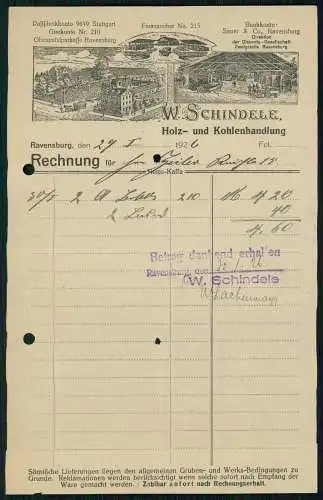 Postscheckkonto 9849 Stuttgart
Girokonto Nr. 210
Oberamtssparkasse Ravensburg
Fernsprecher No. 215
Bankkonto:
Ravensburg
Direktion
der Disconto-Gesellschaft
Zweigstelle Ravensburg
W. SCHINDELE,
Holz- und Kohlenhandlung
Ravensburg, den 29 I 1926 Fol.
Rechnung für
Netto-Kassa
30/I 2 210 M 4.20
2 40
4.60
Betrag dankend erhalten
Ravensburg, den 30/I 26
W. Schindele
Sämtliche Lieferungen liegen den allgemeinen Gruben- und Werks-Bedingungen zu
Grunde. Reklamationen werden berücksichtigt wenn solche sofort nach Empfang der
Ware gemacht werden. Zahlbar sofort nach Rechnungserhalt.